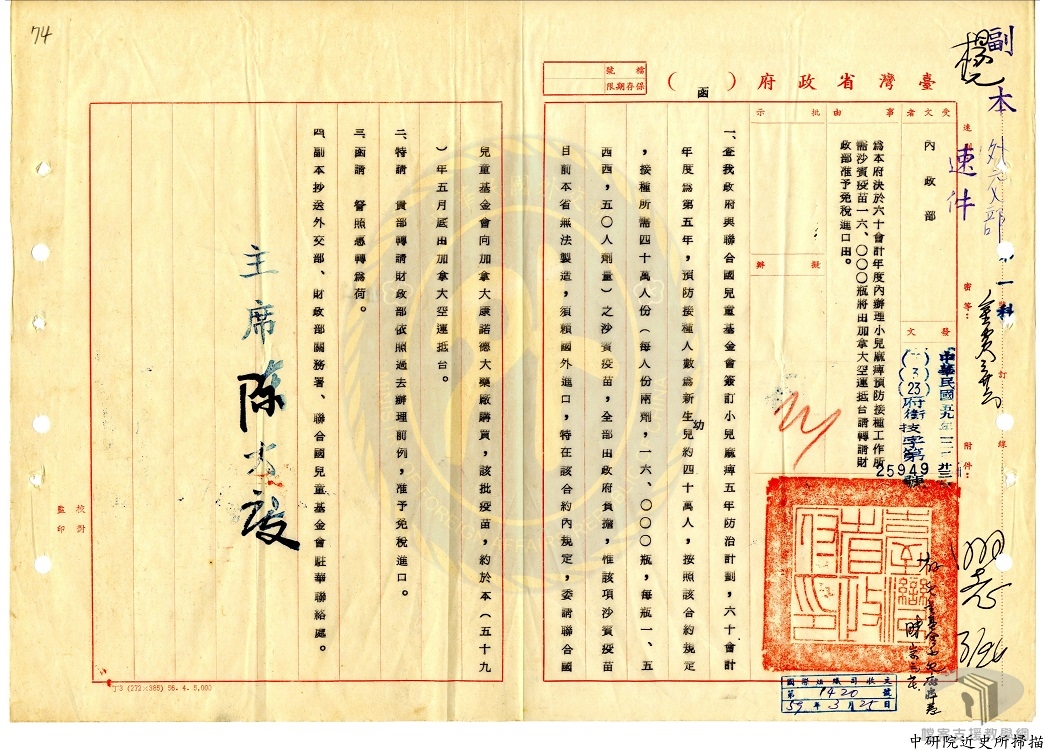 74
副本
外交部
速件
臺灣省政府（函）
檔號
保存期限
受文者
內政部
事由
為本府決於六十會計年度內辦理小兒麻痺預防接種工作所
需沙賓疫苗一六、〇〇〇瓶將由加拿大空運抵台請轉請財
政部准予免稅進口由。
批示
擬辦
密等：
附件：
發文
中華民國
府衛技字第
25949號
一、查我政府與聯合國兒童基金會簽訂小兒麻痺五年防治計劃，六十會計
年度為第五年，預防接種人數為新生幼兒約四十萬人，按照該合約規定
，接種所需四十萬人份（每人份兩劑，一六、〇〇〇瓶，每瓶一、五
西西，五〇人劑量）之沙賓疫苗，全部由政府負擔，惟該項沙賓疫苗
目前本省無法製造，須賴國外進口，特在該合約內規定，委請聯合國
兒童基金會向加拿大康諾德大藥廠購買，該批疫苗，約於本（五十九
）年五月底由加拿大空運抵台。
二、特請　貴部轉請財政部依照過去辦理前例，准予免稅進口。
三、函請　督照惠轉為荷。
四、副本抄送外交部、財政部關務署、聯合國兒童基金會駐華聯絡處。
主席
校對
監印
3/26
第1420號
59年3月25日
J3 (272×385) 56. 4. 5,000
檔案支援教學網
中研院近史所掃描